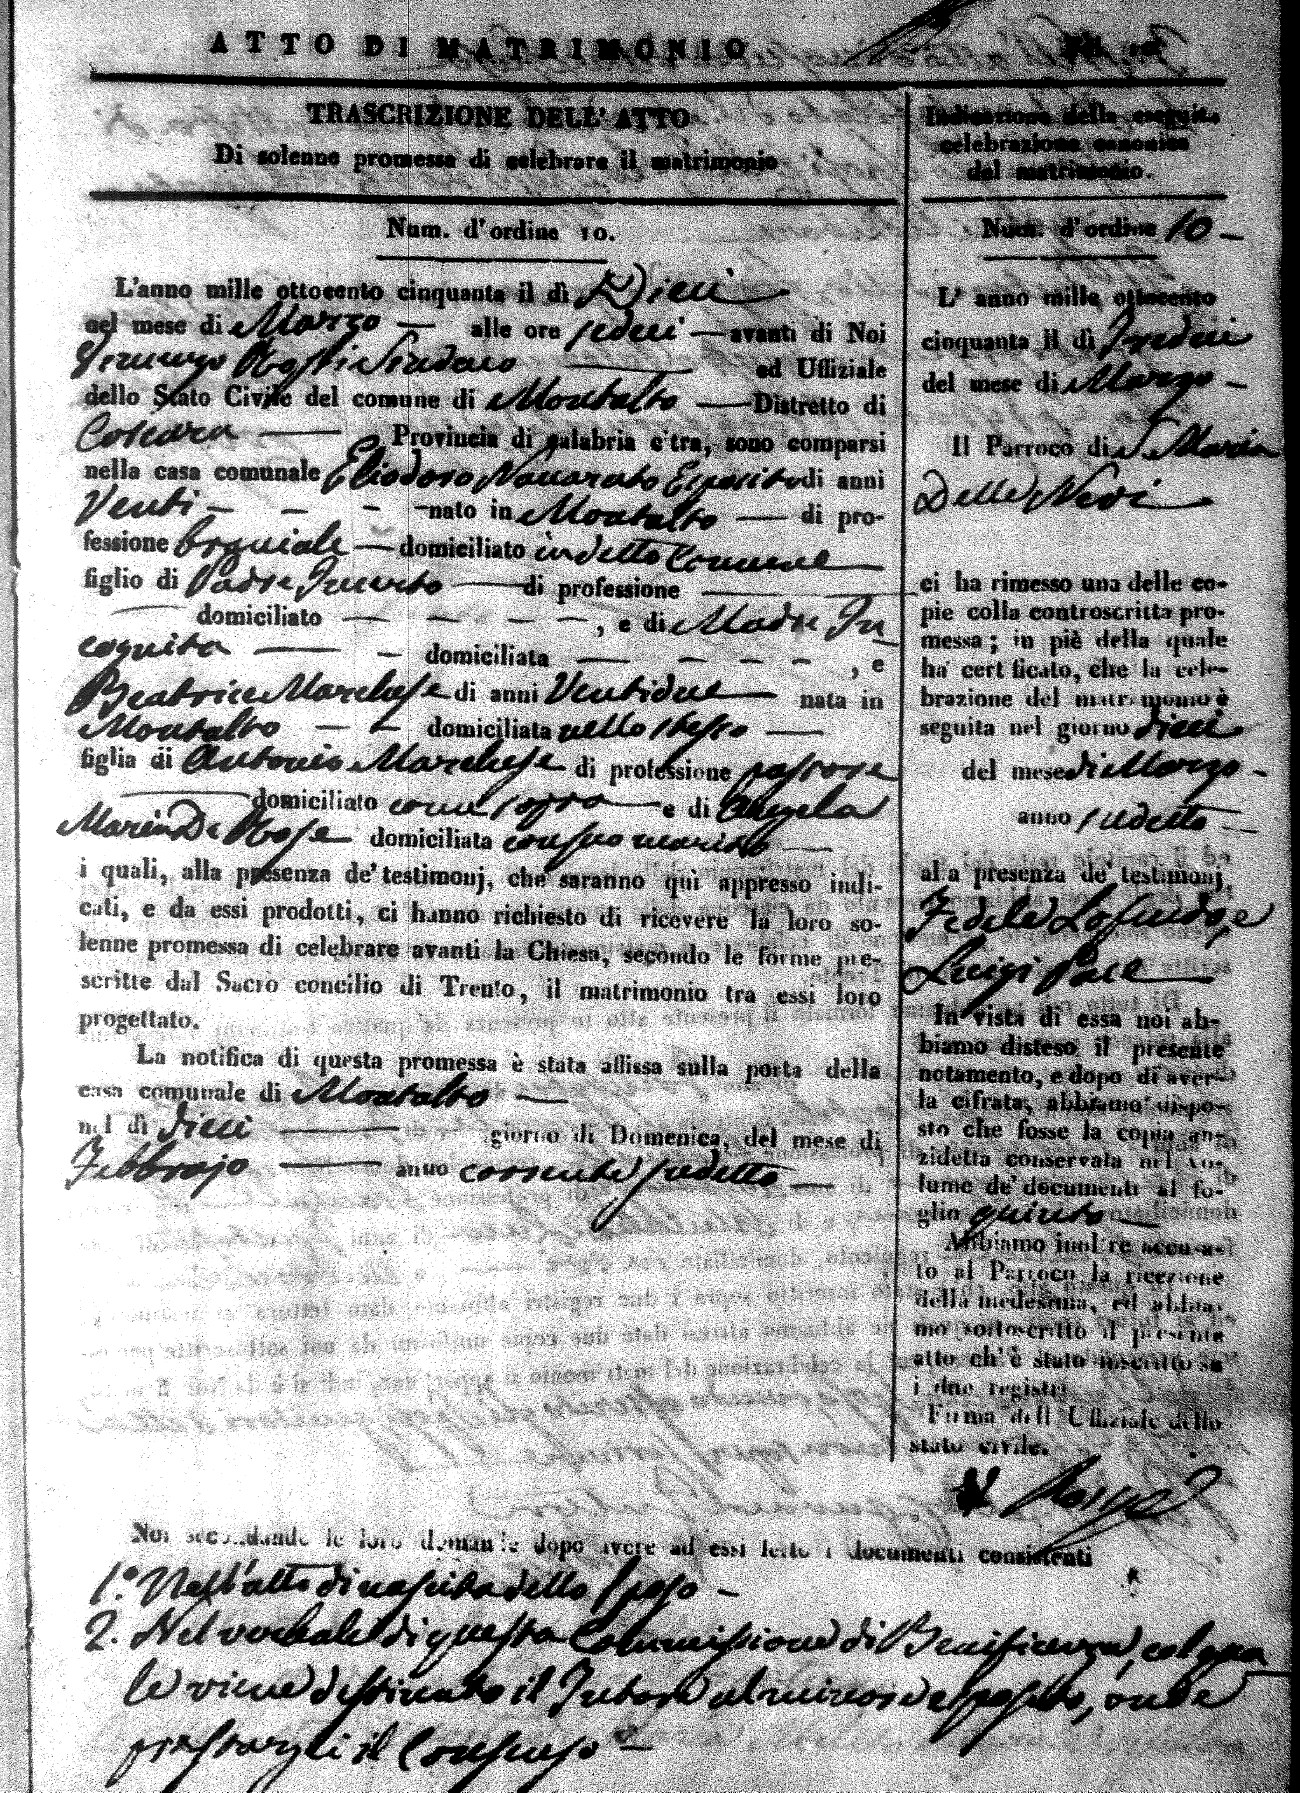 ATTO DI MATRIMONIO
TRASCRIZIONE DELL' ATTO
Di solenne promessa di celebrare il matrimonio
Num. d'ordine 10.
L'anno mille ottocento cinquanta il dì Dieci
nel mese di Marzo — alle ore sedici — avanti di Noi
Rossi Sindaco — ed Uffiziale
dello Stato Civile del comune di Montalto — Distretto di
Cosenza — Provincia di calabria citra, sono comparsi
nella casa comunale Eliodoro Naccarato Esposito di anni
Venti — — — nato in Montalto — di pro-
fessione — domiciliato in detto Comune —
figlio di Padre Incerto — di professione —
— domiciliato — — — — , e di Madre In
cognita — — domiciliata — — — — , e
Beatrice Marchese di anni Ventidue — nata in
Montalto — — domiciliata nello stesso —
figlia di Antonio Marchese di professione pastore
— domiciliato come sopra — e di Angela
Maria De Rose domiciliata con suo marito —
i quali, alla presenza de' testimonj, che saranno quì appresso indi-
cati, e da essi prodotti, ci hanno richiesto di ricevere la loro so-
lenne promessa di celebrare avanti la Chiesa, secondo le forme pre-
scritte dal Sacro concilio di Trento, il matrimonio tra essi loro
progettato.
La notifica di questa promessa è stata affissa sulla porta della
casa comunale di Montalto —
nel dì dieci — giorno di Domenica, del mese di
Febbrajo — anno corrente sudetto —
Indicazione della eseguita
celebrazione canonica
del matrimonio.
Num. d'ordine 10 —
L' anno mille ottocento
cinquanta il dì Tredici
del mese di Marzo —
Il Parroco di S. Maria
Delle Nevi —
ci ha rimesso una delle co-
pie colla controscritta pro-
messa; in piè della quale
ha certificato, che la cele-
brazione del matrimonio è
seguita nel giorno dieci
del mese di Marzo —
anno sudetto —
alla presenza de' testimonj
Fedele Lofeudo, e
Luigi Pace —
In vista di essa noi ab-
biamo disteso il presente
notamento, e dopo di aver-
la cifrata, abbiamo dispo-
sto che fosse la copia an-
zidetta conservata nel vo-
lume de' documenti al fo-
glio quinto —
Abbiamo inoltre accusa-
to al Parroco la ricezione
della medesima, ed abbia-
mo sottoscritto il presente
atto ch'è stato inscritto su
i due registri
Firma dell' Uffiziale dello
stato civile.
Noi secondando le loro demande dopo avere ad essi letto i documenti consistenti
1.° Nell'atto di nascita dello sposo —
2. Nel verbale di questa Commissione di Benificenza, col qua
le viene destinato il Tutore al minore esposito, onde
prestargli il Consenso —